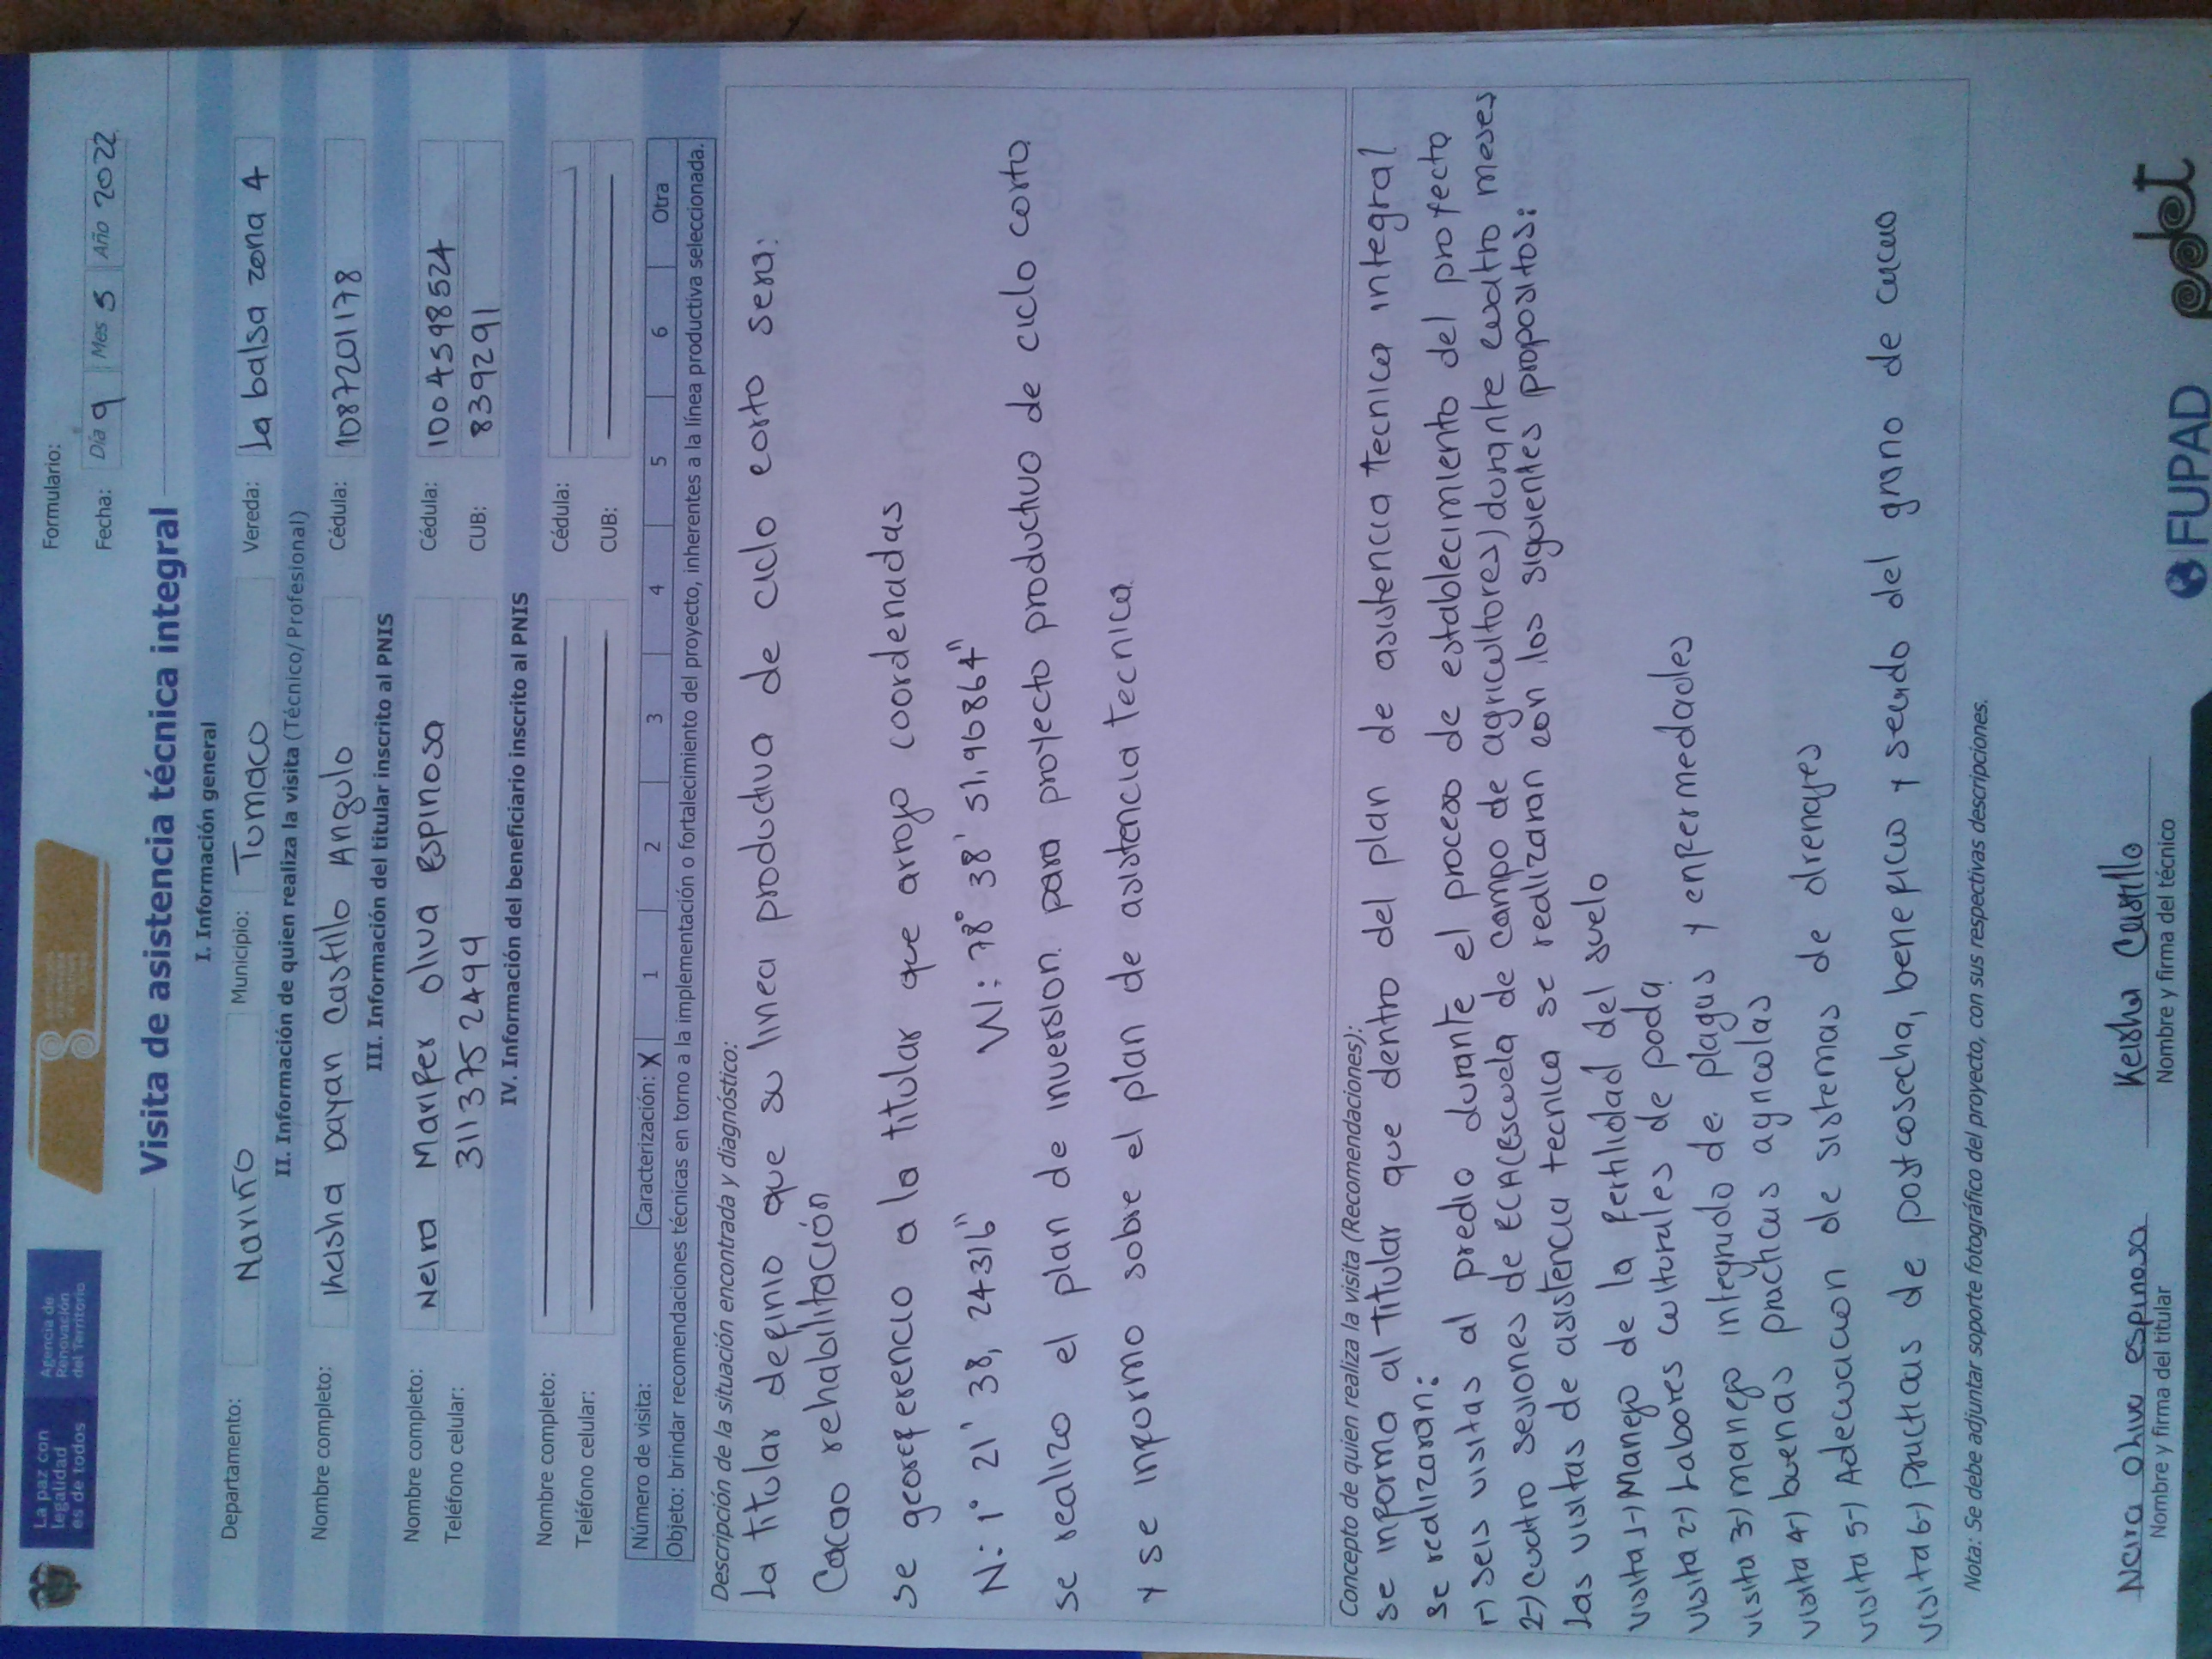 La paz con
legalidad
es de todos
Agencia de
Renovación
del Territorio
Formulario:
Fecha: Día 9 Mes 5 Año 2022
Visita de asistencia técnica integral
I. Información general
Departamento: Nariño Municipio: Tumaco Vereda: La balsa zona 4
II. Información de quien realiza la visita (Técnico/ Profesional)
Nombre completo: Kesha Dayan Castillo Angulo Cédula: 1087201178
III. Información del titular inscrito al PNIS
Nombre completo: Neira Marifer oliva espinosa Cédula: 1004598524
Teléfono celular: 3113752499 CUB: 839291
IV. Información del beneficiario inscrito al PNIS
Nombre completo: Cédula:
Teléfono celular: CUB:
Número de visita: Caracterización: X 1 2 3 4 5 6 Otra
Objeto: brindar recomendaciones técnicas en torno a la implementación o fortalecimiento del proyecto, inherentes a la línea productiva seleccionada.
Descripción de la situación encontrada y diagnóstico:
La titular definio que su linea productiva de ciclo corto sera:
Cacao rehabilitación
se georeferencio a la titular que arrojo coordenadas
N: 1° 21' 38, 24316" W: 78° 38' 51,960864"
se realizo el plan de inversion para proyecto productivo de ciclo corto
y se informo sobre el plan de asistencia tecnica
Concepto de quien realiza la visita (Recomendaciones):
se informo al titular que dentro del plan de asistencia tecnica integral
se realizaran:
1-) seis visitas al predio durante el proceso de establecimiento del proyecto
2-) cuatro sesiones de ECA(Escuela de campo de agricultores) durante cuatro meses
Las visitas de asistencia tecnica se realizaran con los siguientes propositos:
visita 1-) Manejo de la fertilidad del suelo
visita 2-) Labores culturales de poda
visita 3-) manejo integrado de plagas y enfermedades
visita 4-) buenas practicas agricolas
visita 5-) Adecuacion de sistemas de drenajes
visita 6-) practicas de postcosecha, beneficio y secado del grano de cacao
Nota: Se debe adjuntar soporte fotográfico del proyecto, con sus respectivas descripciones.
Neira oliva espinosa Keisha Castillo
Nombre y firma del titular Nombre y firma del técnico
FUPAD pdet